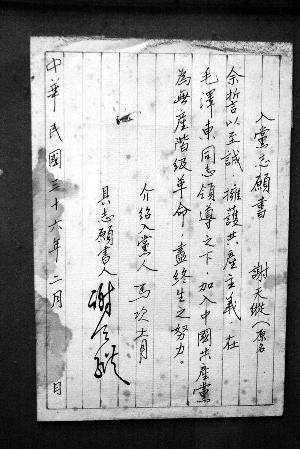 入黨志願書 謝天縱(原名
余誓以至誠.擁護共產主義.在
毛澤東同志領導之下.加入中國共產黨
為無產階級革命.盡終生之努力.
介紹入黨人 馬次
具志願書人 謝
中華民國三十六年二月 日